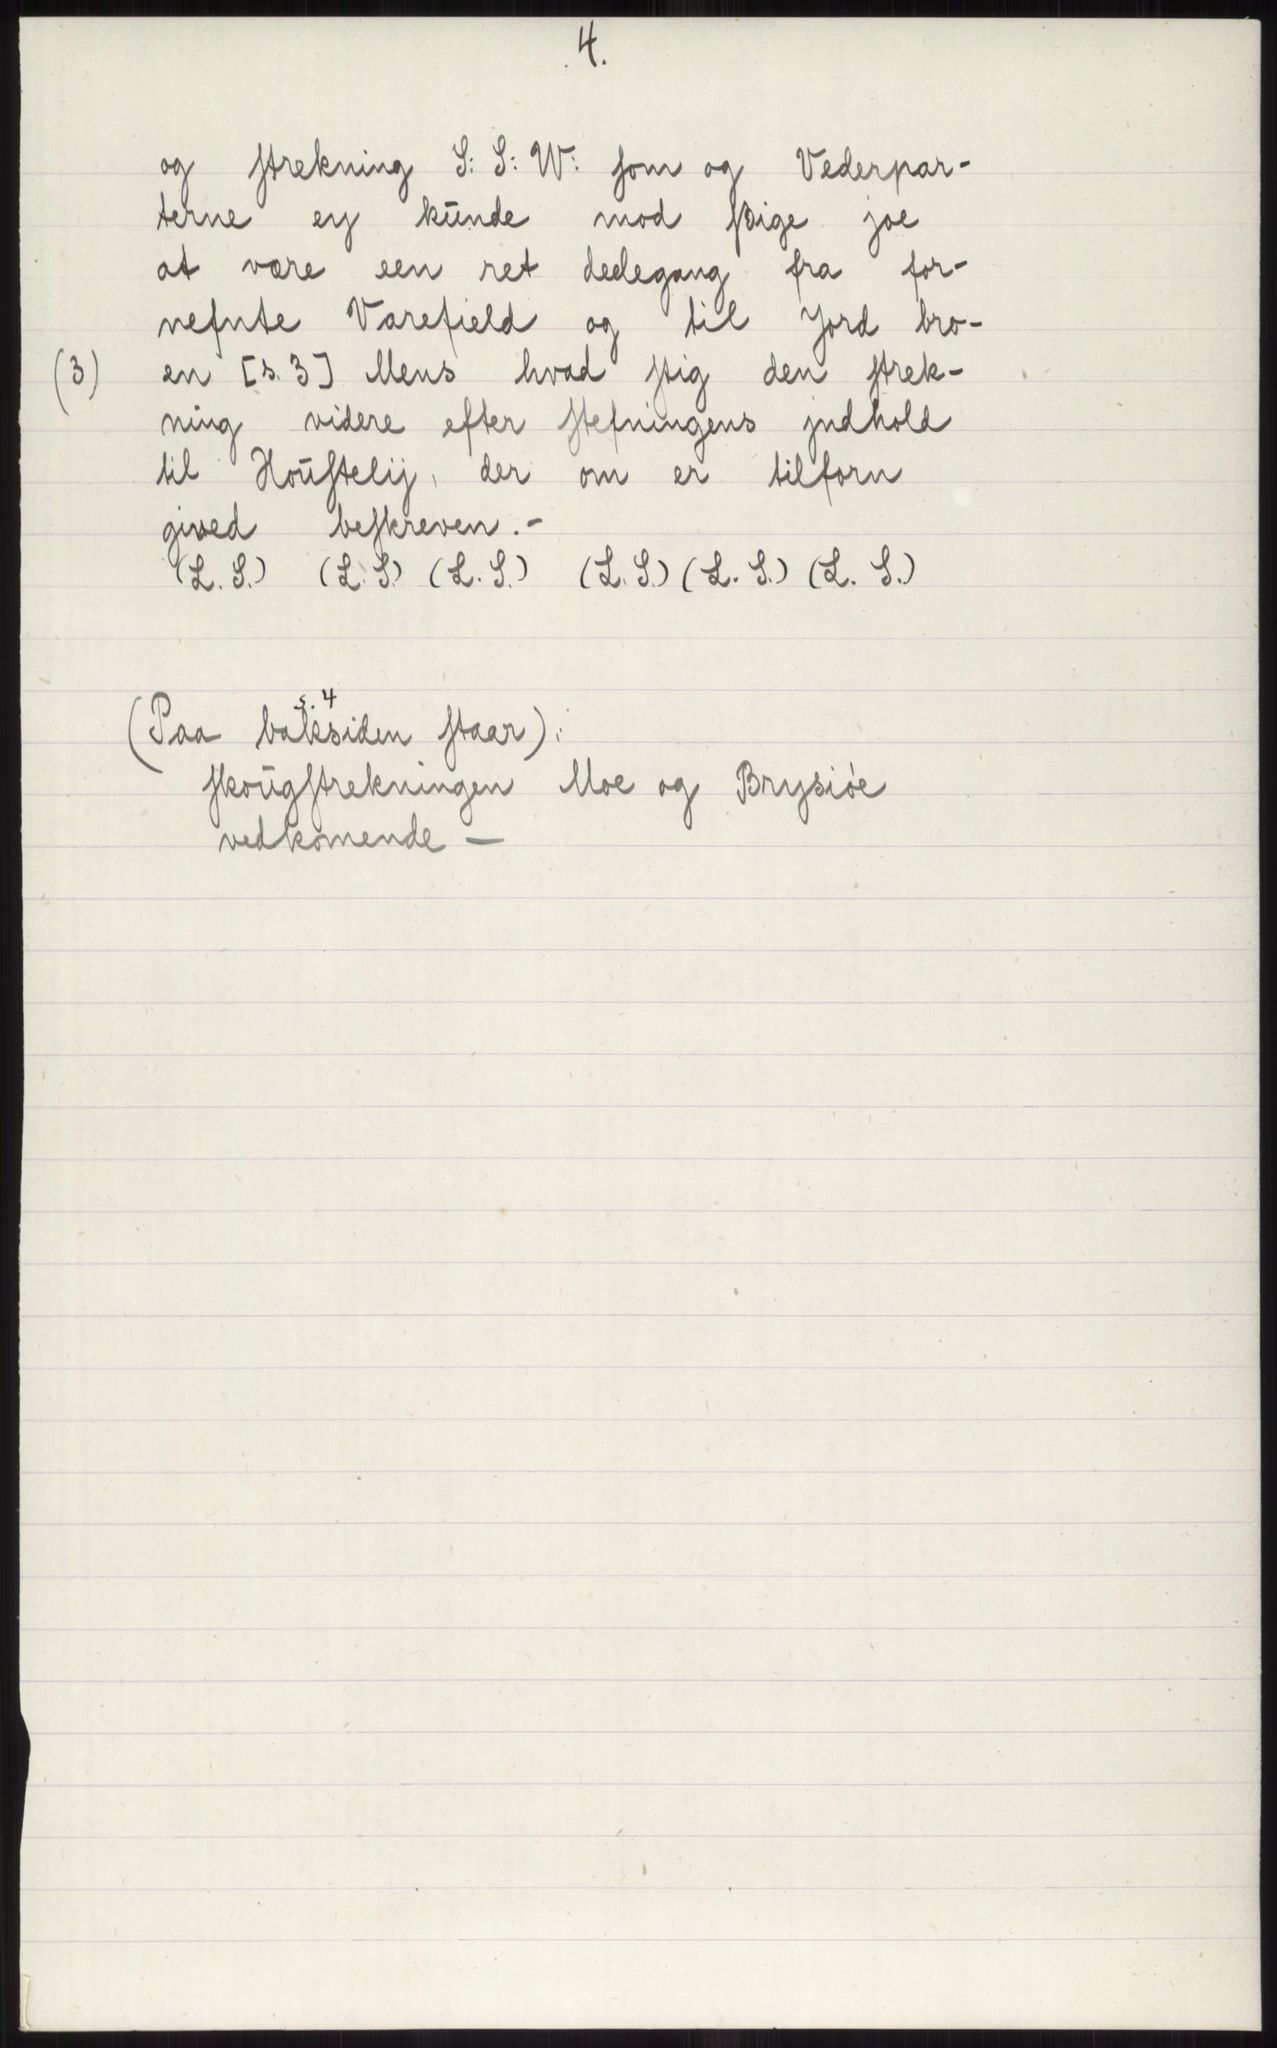 4.
og strekning S: S: W: som og Vederpar-
terne ey kunde mod sige joe
at være een ret deelegang fra for-
nefnte Varefield og til Jord bro-
(3) en [s. 3] Mens hvad stig den strek-
ning videre efter stefningens jndhold
til Houstelij, der om er tilforn
gived beskreven.-
(L. S.) (L. S.) (L. S.) (L. S.) (L. S.) (L. S.)
s. 4
(Paa baksiden staar):
skougstrekningen Moe og Brysiøe
vedkomende —